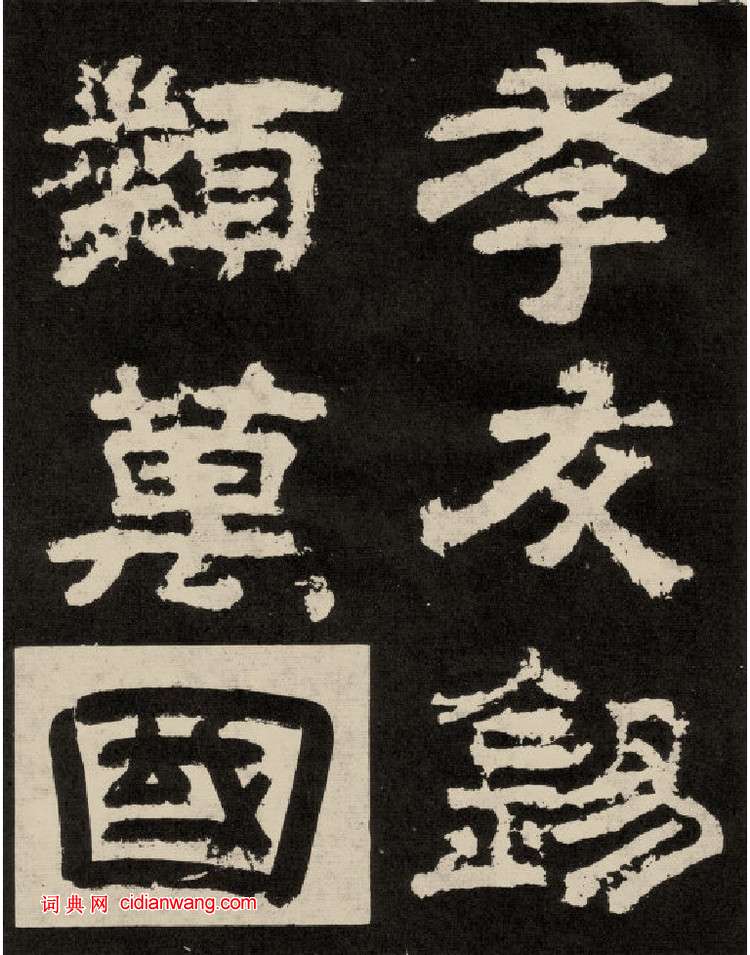 孝友錫
類萬國
词典网 cidianwang.com